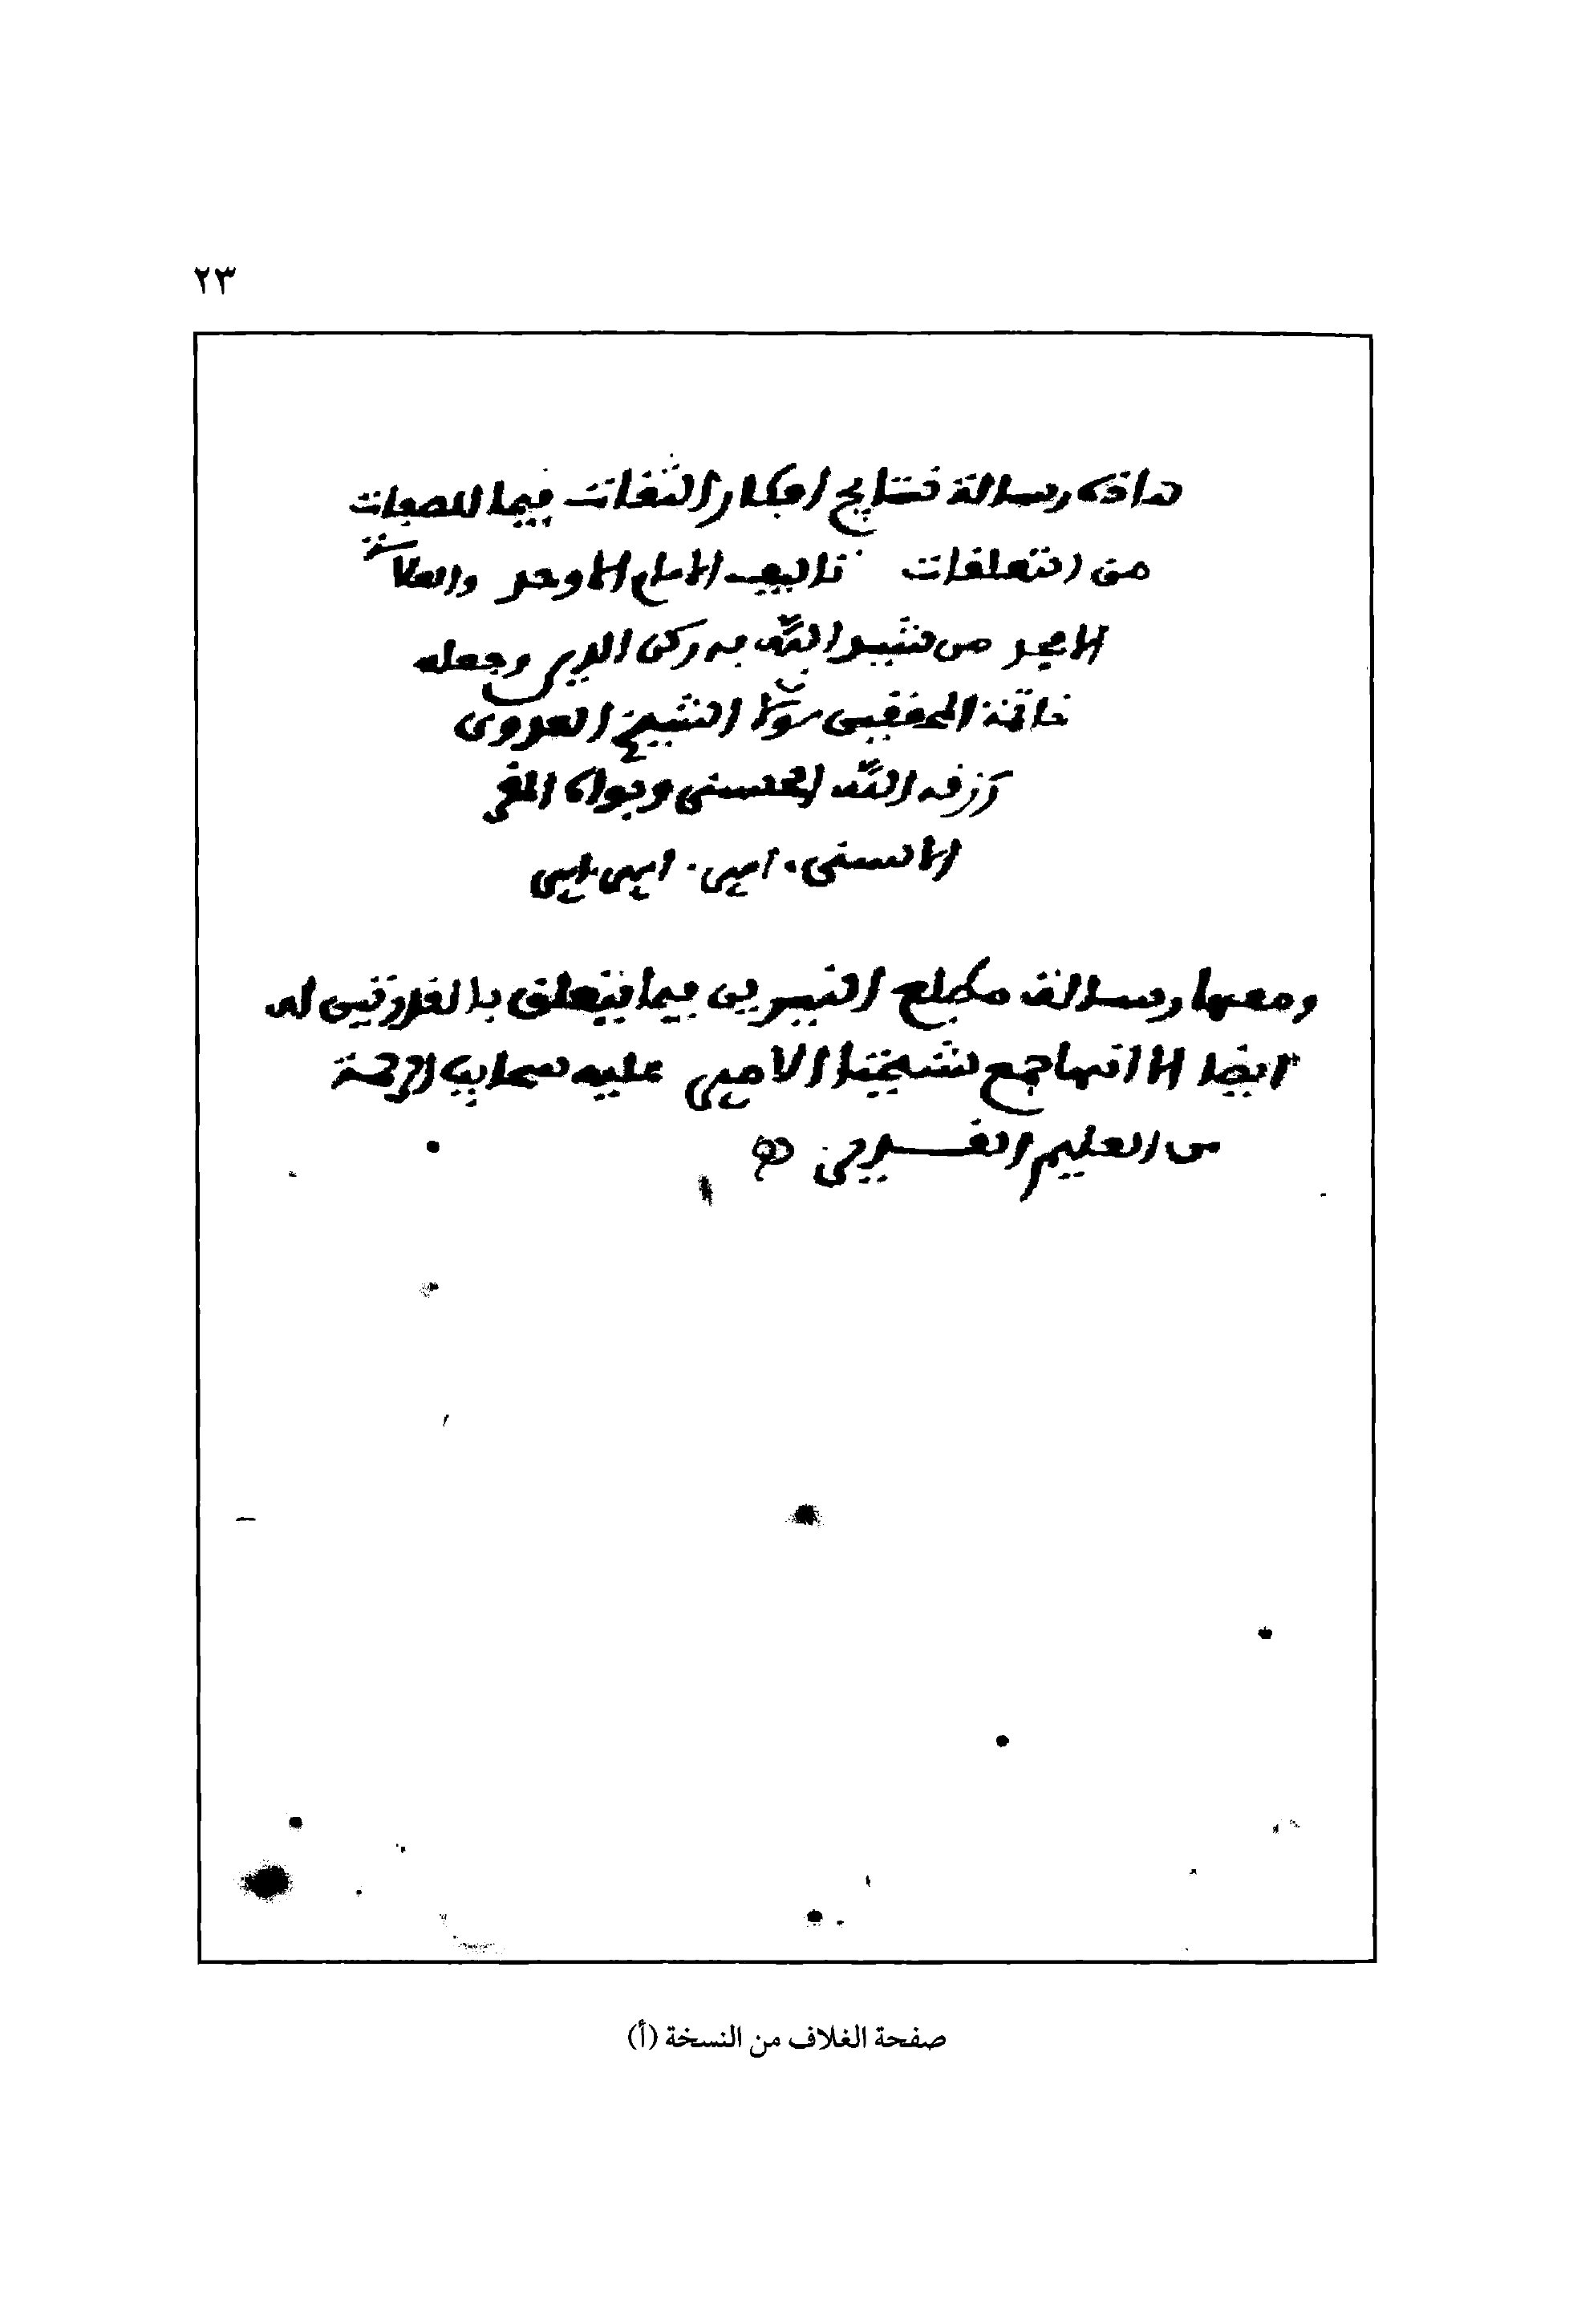 ٢٣
هاذه رسالة نتايج افكار الثقات فيما للصفات
من التعلقات تاليف الامام الاوحد والعلامة
الامجد من شيد الله به ركن الدين وجعله
خاتمة المحققين سيدنا الشيخ العدوى
رزقه الله الحسنى وبواه المقر
الاسنى امين امين امين
ومعها رسالة مطلع النيرين فيما يتعلق بالقدرتين له
ايضا الا انها جمع شيخنا الامير عليه سحايب الرحمة
من العليم القدير
صفحة الغلاف من النسخة (أ)